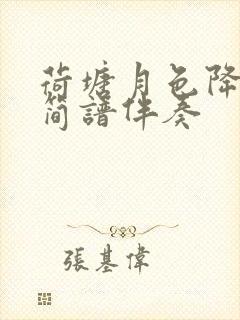 荷塘月色降
简譜伴奏
張基偉